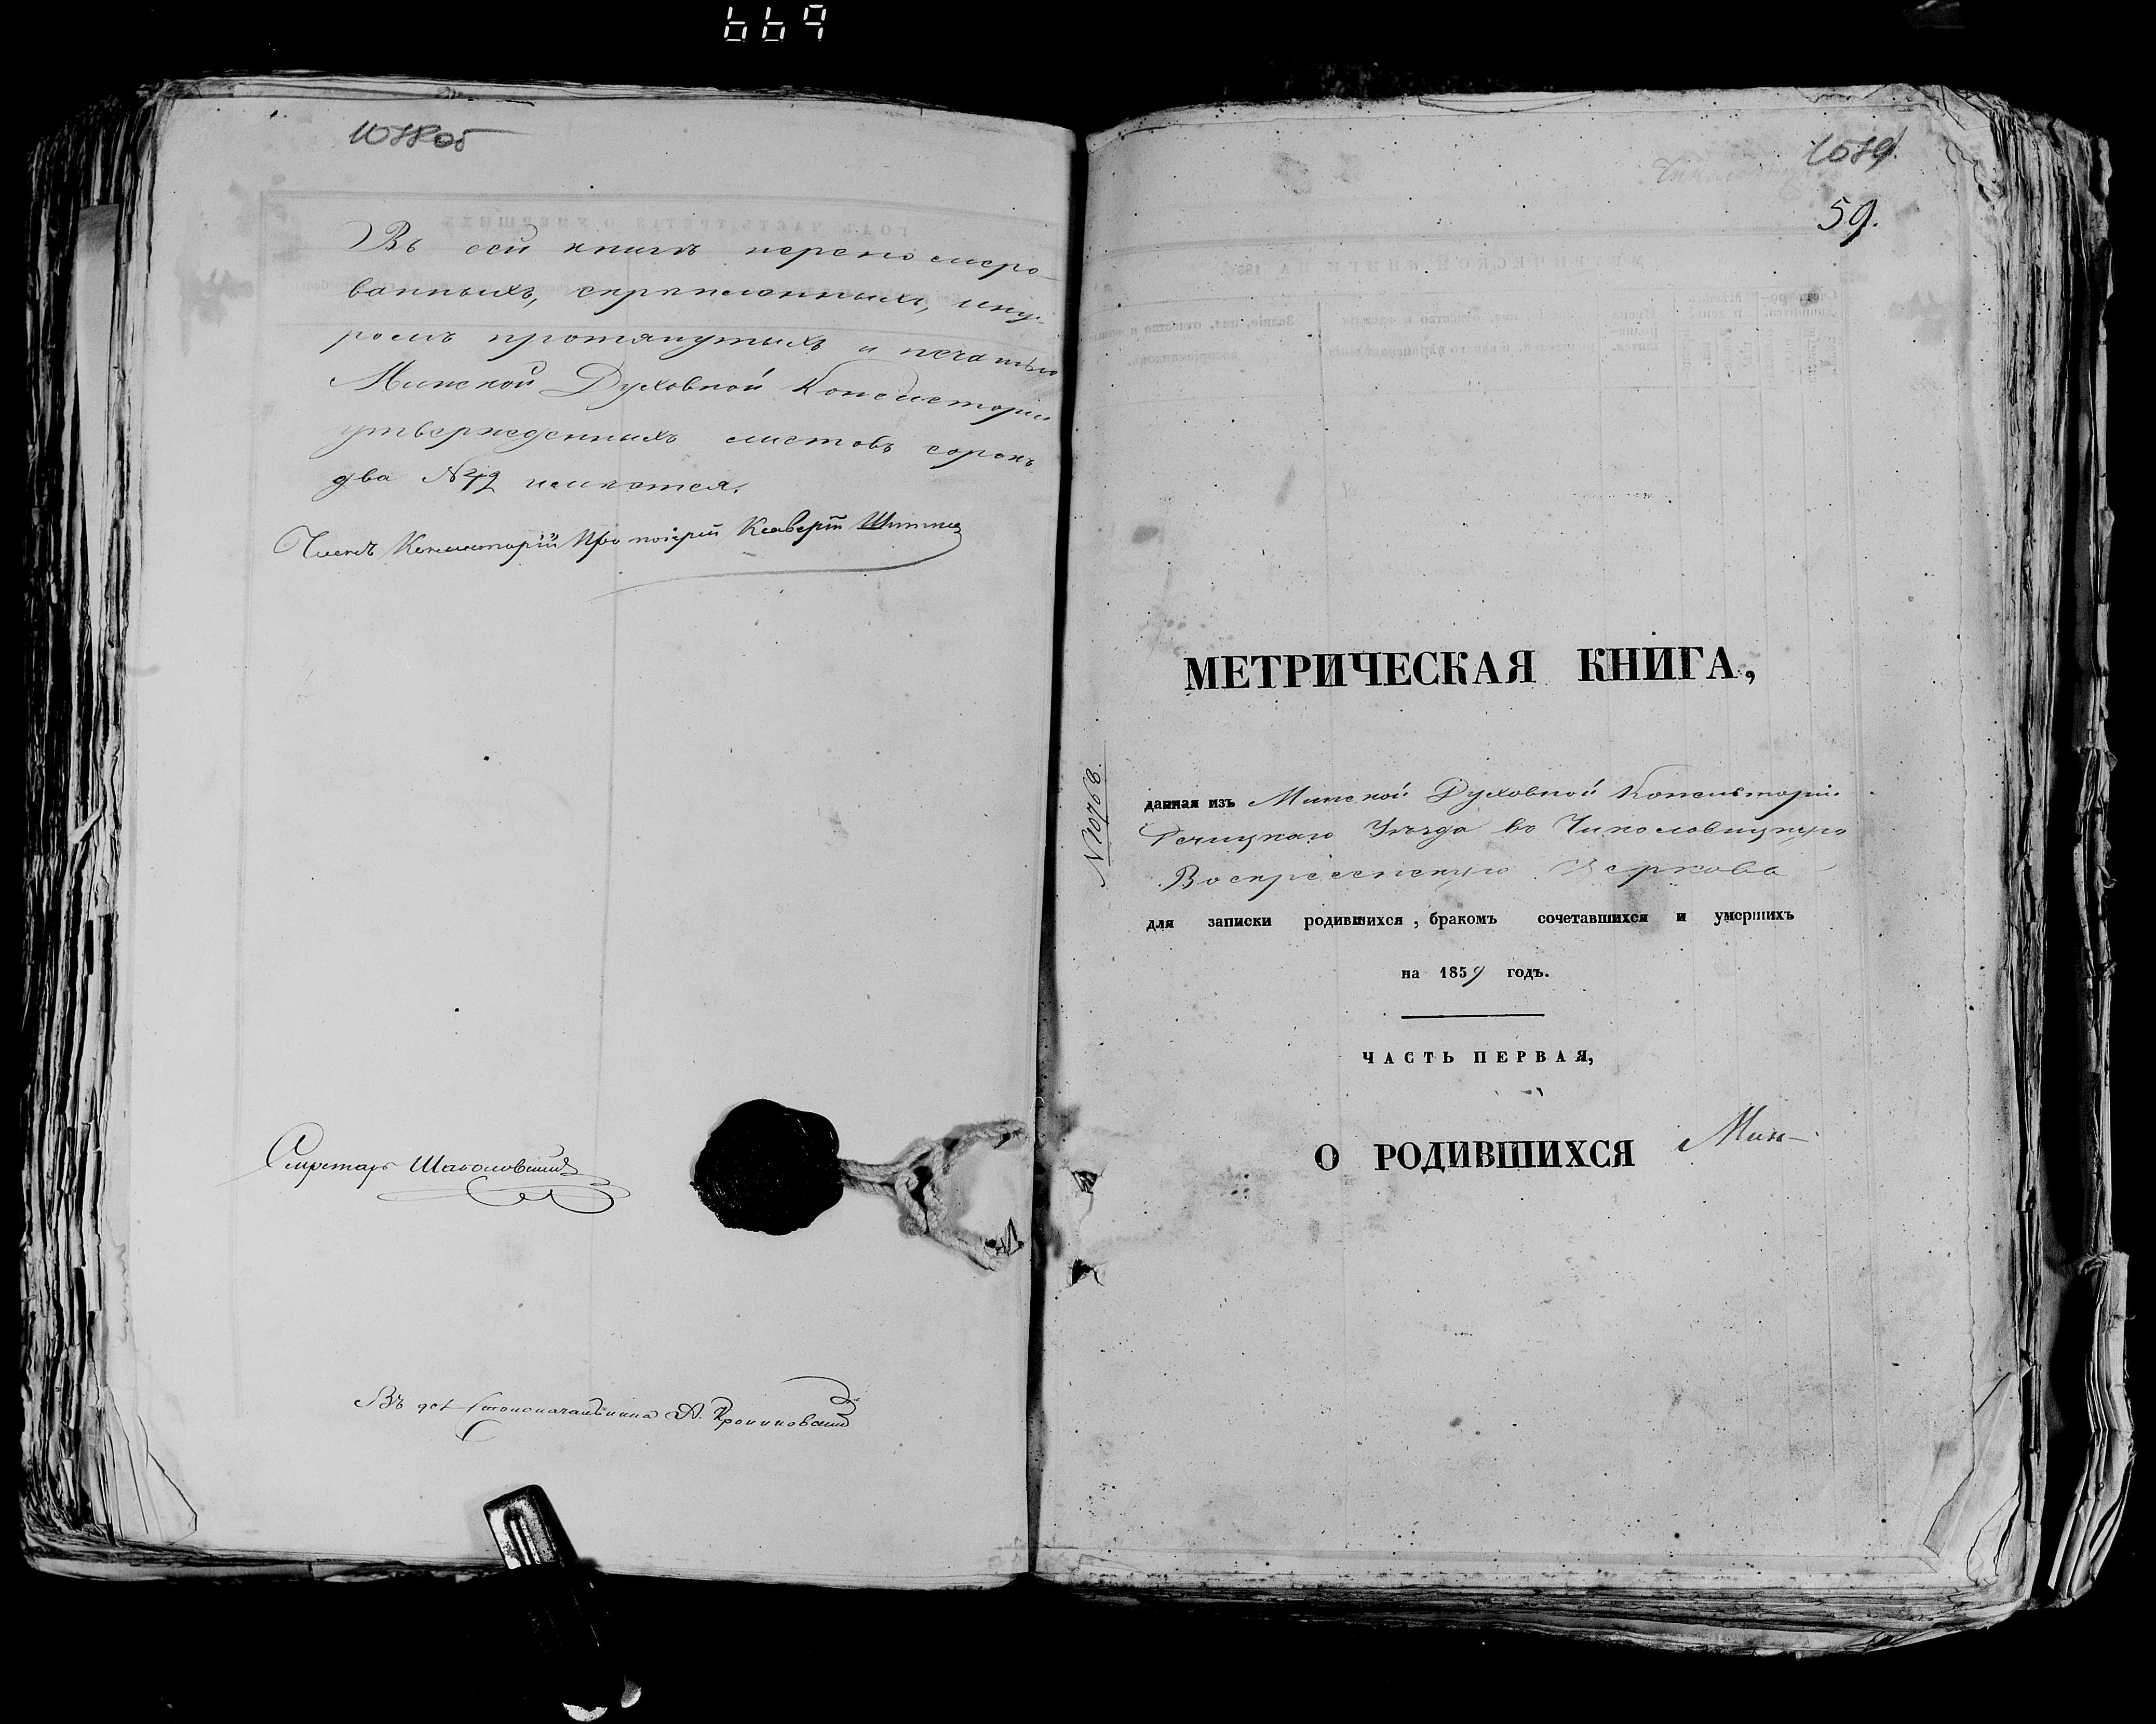 669
1078 об
Въ сей книгѣ перенумеро-
ванныхъ, скрѣпленныхъ, шну-
ромъ протянутыхъ и печатью
Минской Духовной Консисторіи
утвержденныхъ листовъ сорокъ
два № 42 имѣются.
Членъ Консисторіи Протоіерей
Секретарь
Въ дол. Столоначальника А.
1079.
59.
МЕТРИЧЕСКАЯ КНИГА,
данная изъ Минской Духовной Консисторіи
Рѣчицкаго Уѣзда во Чиколовицкую
Воскресенскую Церковь
для записки родившихся, бракомъ сочетавшихся и умершихъ
на 1859 годъ.
ЧАСТЬ ПЕРВАЯ,
О РОДИВШИХСЯ Мин-